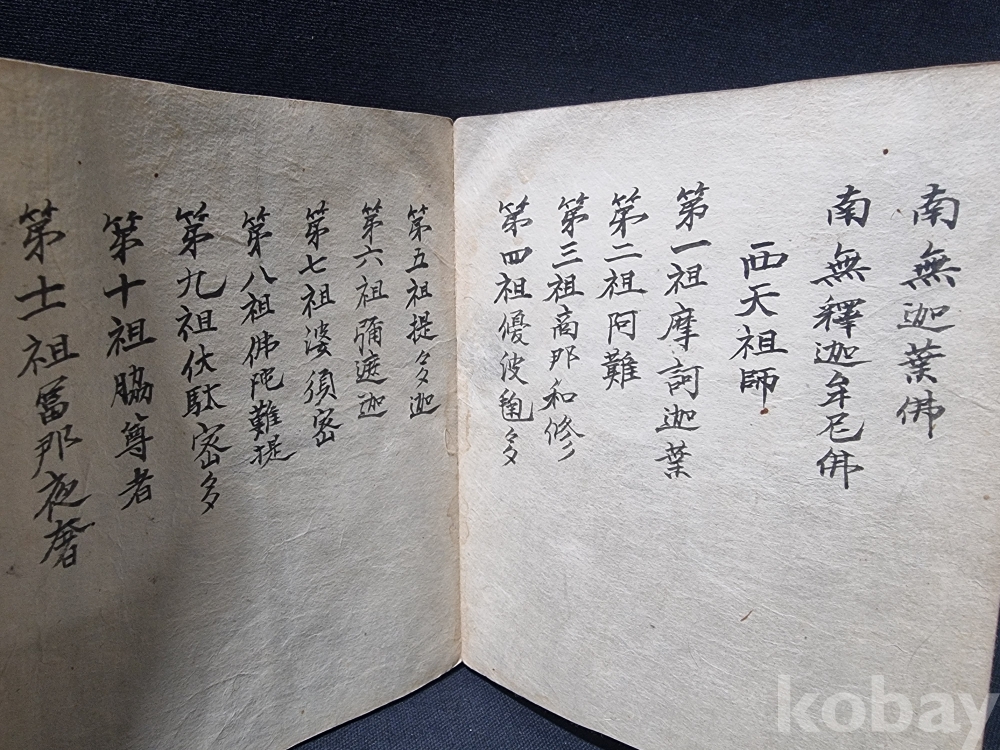 南無迦葉佛
南無釋迦牟尼佛
西天祖師
第一祖摩訶迦葉
第二祖阿難
第三祖高那和修
第四祖優波毱多
第五祖提多迦
第六祖彌遮迦
第七祖婆須密
第八祖佛陀難提
第九祖伏馱密多
第十祖脇尊者
第十一祖富那夜奢
kobay